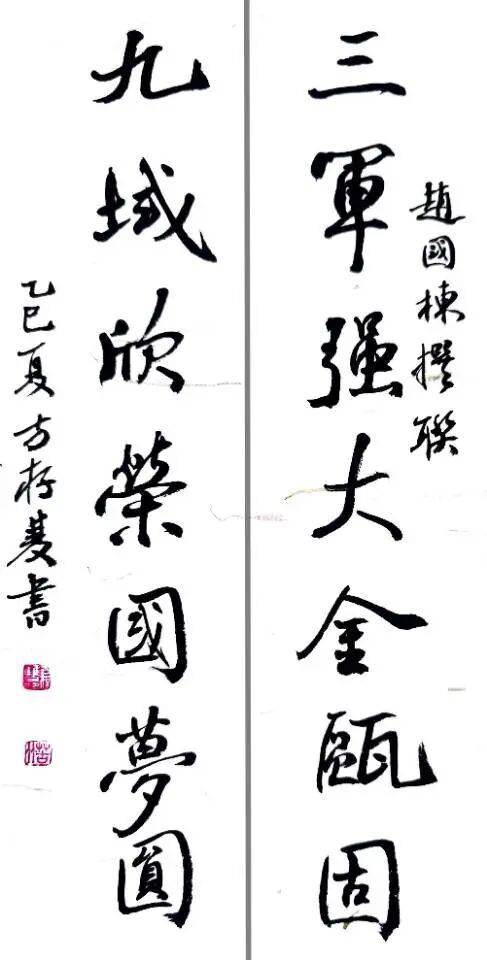 趙國棟撰聯
三軍强大金甌固
九域欣榮國夢圓
乙巳夏方存蔆書